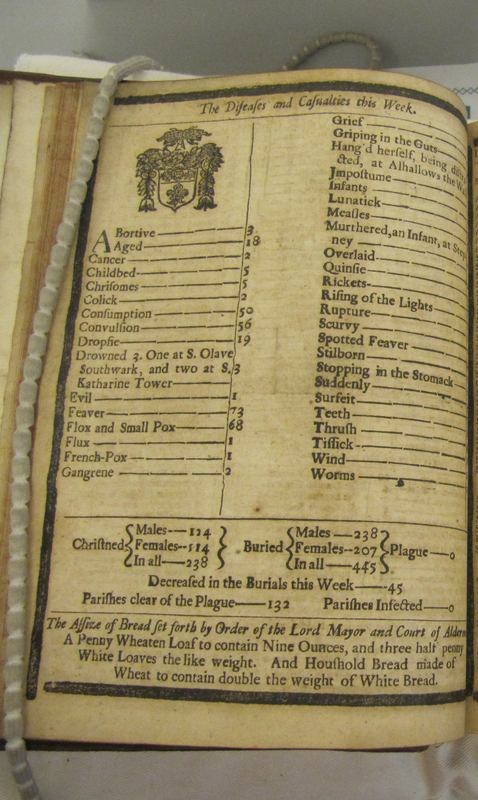 The Diſeaſes and Caſualties this Week.
ABortive 3
Aged 18
Cancer 2
Childbed 5
Chriſomes 5
Colick 2
Conſumption 50
Convulſion 56
Dropſie 19
Drowned 3. One at S. Olave
Southwark, and two at S. 3
Katharine Tower
Evil 1
Feaver 73
Flox and Small Pox 68
Flux 1
French-Pox 1
Gangrene 2
Grief
Griping in the Guts
Hang'd herſelf, being
cted, at Alhallows the
Impoſtume
Infants
Lunatick
Meaſles
Murthered, an Infant, at
ney
Overlaid
Quinſie
Rickets
Riſing of the Lights
Rupture
Scurvy
Spotted Feaver
Stilborn
Stopping in the Stomack
Suddenly
Surfeit
Teeth
Thruſh
Tiſſick
Wind
Worms
Chriſtned { Males 124 Females 114 In all 238 } Buried { Males 238 Females 207 In all 445 } Plague 0
Decreaſed in the Burials this Week 45
Pariſhes clear of the Plague 132 Pariſhes Infected 0
The Aſſize of Bread ſet forth by Order of the Lord Mayor and Court of
A Penny Wheaten Loaf to contain Nine Ounces, and three half penny
White Loaves the like weight. And Houſhold Bread made of
Wheat to contain double the weight of White Bread.